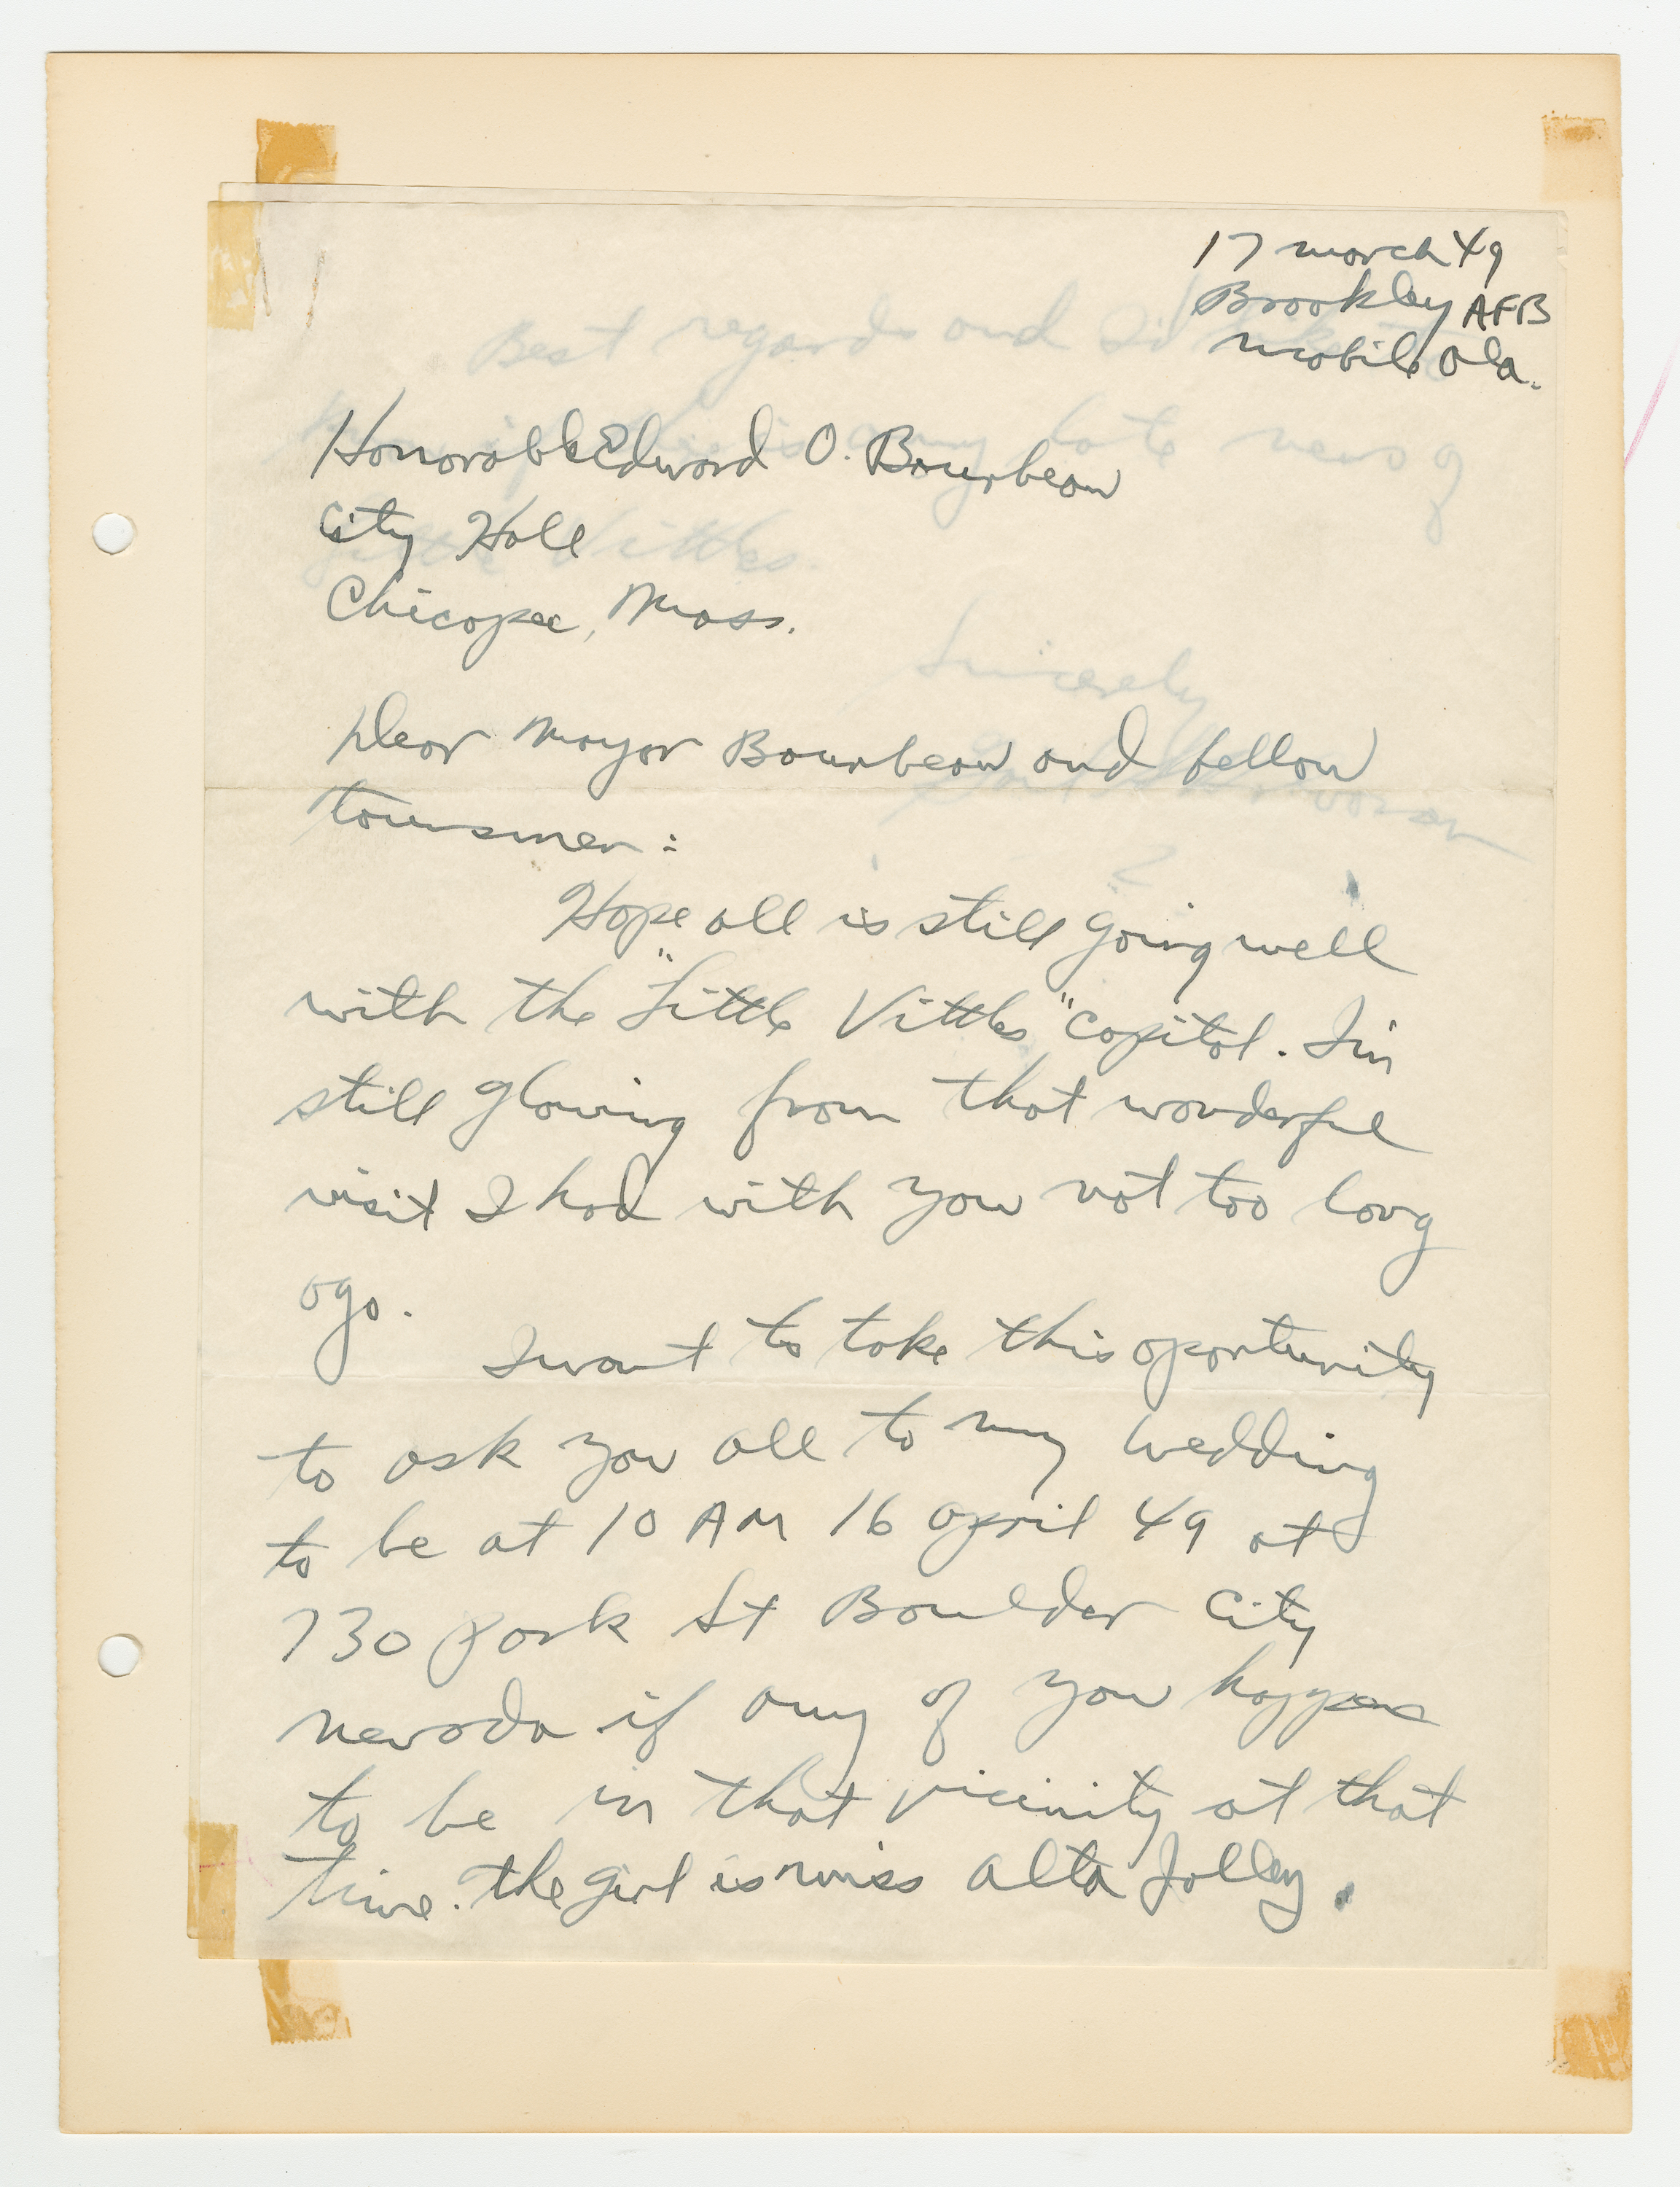 17 March 49
Brookley AFB
Mobile Ala.
Honorable Edward O. Bourbeau
City Hall
Chicopee, Mass.
Dear Mayor Bourbeau and fellow
townsmen:
Hope all is still going well
with the "Little Vittles" capitol. I'm
still glowing from that wonderful
visit I had with you not too long
ago.
I want to take this oportunity
to ask you all to my wedding
to be at 10 AM 16 April 49 at
730 Park St Boulder City
Nevada if any of you happen
to be in that vicinity at that
time. The girl is Miss Alta Jolley.
Best regards and I'd like to
any late news of
Little Vittles.
Sincerely